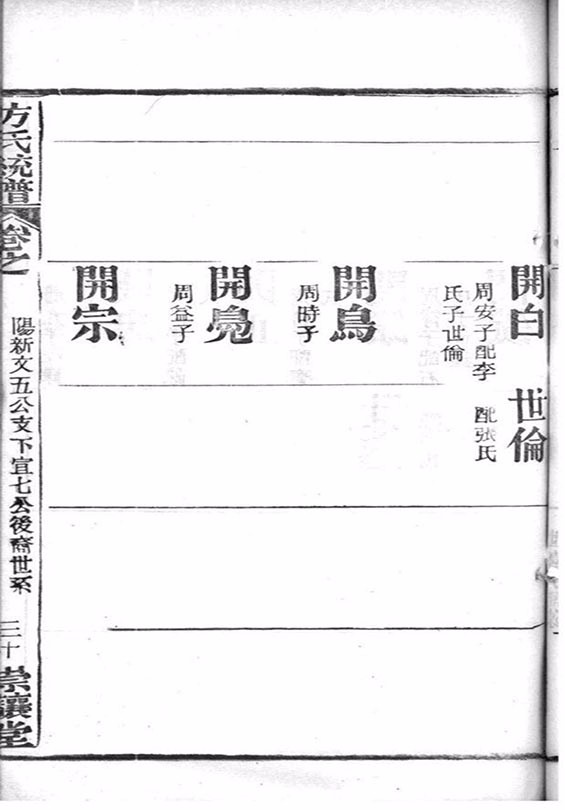 開白
周安子配李
氏子世倫
世倫
配張氏
開鳥
周時子
開鳧
周益子
開宗
方氏統譜
卷之
陽新文五公支下宜七公後裔世系
三十
崇讓堂